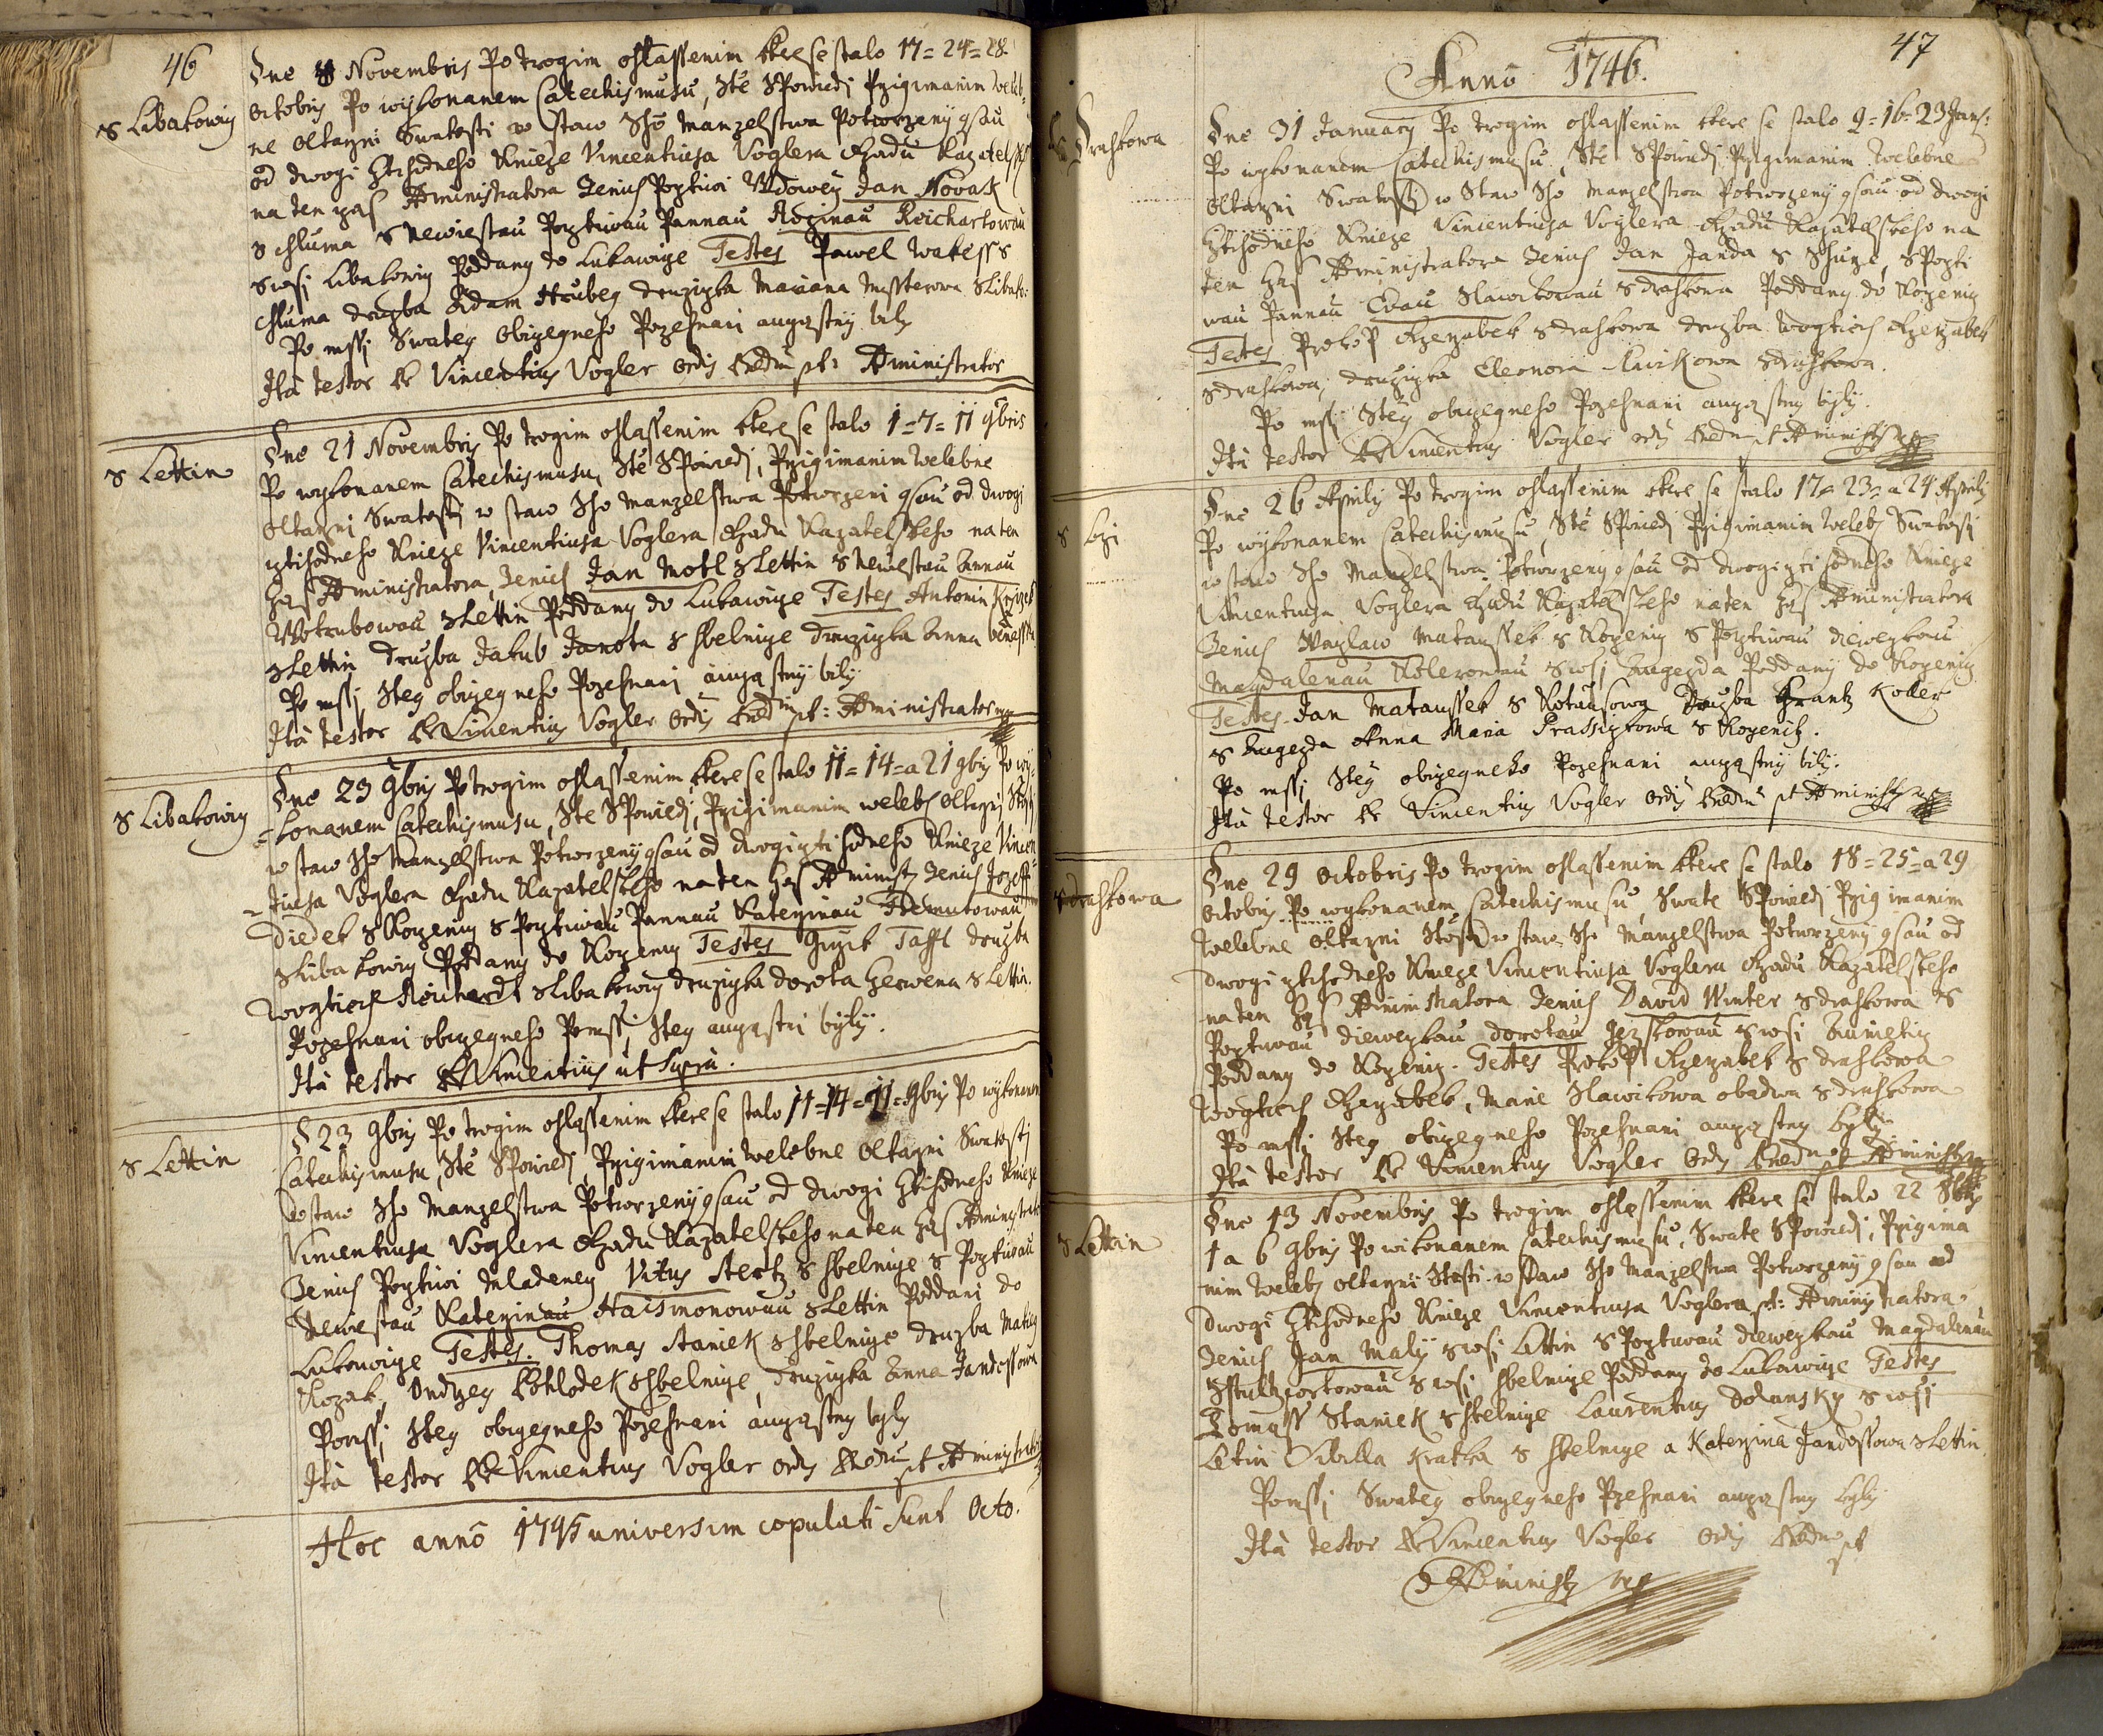 46
z Libakowiz
Dne 8 Novembris Po trogim ohlassenim ktere se stalo 17 = 24 = 28
octobris Po wykonanem Catechismusu, Ste Spowiedj Przigimanim Weleb=
ne oltarzni Swatosti w staw Sho Manzelstwa Potwrzeny gsau
od dwogi Ztihodneho Knieze Vincentiusa Voglera Rzadu Kazatelskeho
na ten czas Administratora Genich Pocztiwi Wdowecz Jan Novak
z Chluma s newiestau Pocztiwau Pannau Rozinau Reichartowau
z wsi Libakowiz Poddany do Lukawize Testes Pawel Wakess z
Chluma druzba Adam Hrubey druziczka Mariana z Libako:
Po mssi Swatey obiczegneho Pozehnani auczastny bily
Ita testor Fr Vincentius Vogler Ordis Praed: pt: Administrator
z Lettin
Dne 21 Novembris Po trogim ohlassenim ktere se stalo 1 = 7 = 11 9bris
Po wykonanem Catechismusu, Ste Spowiedj, Przigimanim Welebne
oltarzni Swatosti w staw Sho Manzelstwa Potwrzeni gsau od dwogi
cztihodneho Knieze Vincentiusa Voglera Rzadu Kazatelskeho na ten
czas Administratora, Genich Jan Motl z Lettin s newestau Annau
Wotrubowau z Lettin Poddany do Lukawize Testes Antonin Krzizek
z Lettin druzba Jakub Janota z Sbelnize druziczka Anna
Po mssi Stey obiczegneho Pozehnani auczastny bily
Ita testor Fr Vincentius Vogler Ordis Praed: pt: Administrator mpp
z Libakowiz
Dne 23 9bris Po trogim ohlassenim ktere se stalo 11 = 14 = a 21 9bris Po wy=
=konanem Catechismusu, Ste Spowiedj, Przigimanim weleb: oltarzni Stosti
w staw Sho Manzelstwa Potwrzeny gsau od dwogi cztihodneho Knieze Vincen=
=tiusa Voglera Rzadu Kazatelskeho na ten czas Administ: Genich Jozeff
Diedek z Kozeniz s Pocztiwau Pannau Katerzinau
z Libakowiz Poddany do Kozeniz Testes Girzik Taffl druzba
Wogtiech Reichardt z Libakowiz druziczka Dorota Czerwena z Lettin.
Pozehnani obiczegneho Po mssi Stey auczastni byly.
Ita testor Fr Vincentius ut supra.
z Lettin
D 23 9bris Po trogim ohlassenim ktere se stalo 11 = 14 = 21 = 9bris Po wykonanem
Catechismusu, Ste Spowiedj, Przigimanim Welebne oltarzni Swatosti
w staw Sho Manzelstwa Potwrzeny gsau od dwogi Ztihodneho Knieze
Vincentiusa Voglera Rzadu Kazatelskeho na ten czas Administrator
Genich Pocztiwi Mladenecz Vitus Stertz z Sbelnize s Pocztiwau
Newestau Katerzinau Haismonowau z Lettin Poddani do
Lukawize Testes. Thomas Staniek z Sbelnize druzba Matieg
Kozak, Ondrzeg Kohlodek z Sbelnize, druziczka Anna Jandossowa
Po mssi Stey obiczegneho Pozehnani auczastny byly
Ita testor Fr Vincentius Vogler Ordis Praed: pt Administrator
Hoc anno 1745 universim copulati sunt Octo.
47
Anno 1746.
Drahkowa
Dne 31 January Po trogim ohlassenim ktere se stalo 9 = 16 = 23 Janu:
Po wykonanem Catechismusu, Ste Spowiedj Przigimanim Welebne
oltarzni Swatosti w Staw Sho Manzelstwa Potwrzeny gsau od dwogi
Cztihodneho Knieze Vincentiusa Voglera Rzadu Kazatelskeho na
ten czas Administratora Genich Jan Janda z s Pozti
wau Pannau Ewau Slawikowau z Drahkowa Poddany do Kozeniz
Testes Prokop Rzerzabek z Drahkowa druzba Wogtiech Rzerzabek
z Drahkowa, druziczka Eleonora Slawikowa z Drahkowa.
Po mssi Stey obiczegneho Pozehnani auczastny byly.
Ita testor Fr Vincentius Vogler Ordis Praed: pt Administ: mpp
z
Dne 26 Aprilis Po trogim ohlassenim ktere se stalo 17 = 23 = a 24 Aprilis
Po wykonanem Catechismusu, Ste Spowiedj Przigimanim Weleb: Swatosti
w staw Sho Manzelstwa Potwrzeny gsau od dwogi czti hodneho Knieze
Vincentiusa Voglera Rzadu Kazatelskeho na ten czas Administratora
Genich Waczlaw Mataussek z Kozeniz s Pocztiwau diewczkau
Magdalenau Kolerowau z wsi Augezda Poddany do Kozeniz
Testes Jan Mataussek z Kotausowa druzba Frantz Koller
z Augezda Anna Maria Prassizkowa z Kozenicz.
Po mssi Stey obiczegneho Pozehnani auczastny bily.
Ita testor Fr Vincentius Vogler Ordis Praed: pt Administ: mpp
z Drahkowa
Dne 29 Octobris Po trogim ohlassenim ktere se stalo 18 = 25 = a 29
Octobris Po wykonanem Catechismusu, Swate Spowiedj Przigimanim
Welebne oltarzni Stosti w staw Sho Manzelstwa Potwrzeny gsau od
dwogi cztihodneho Knieze Vincentiusa Voglera Rzadu Kazatelskeho
na ten czas Administratora Genich David Winter z Drahkowa s
Pocztiwau diewczkau Dorotau Jezskowau z wsi
Poddany do Kozeniz. Testes Prokop Rzerzabek z Drahkowa
Wogtiech Rzerzabek, Marie Slawikowa obadwa z Drahkowa
Po mssi Stey obiczegneho Pozehnani auczastny byly
Ita testor Fr Vincentius Vogler Ordis Praed: pt Administ:
z Lettin
Dne 13 Novembris Po trogim ohlassenim ktere se stalo 22 8bris
1 a 6 9bris Po wikonanem Catechismusu, Swate Spowiedj, Przigima
nim Weleb: oltarzni Stosti w staw Sho Manzelstwa Potwrzeny gsau od
dwogi Ztihodneho Knieze Vincentiusa Voglera pt: Administratora
Genich Jan Maly z wsi Lettin s Pocztiwau diewczkau Magdalenau
z wsi Sbelnize Poddany do Lukawize Testes
Tomass Staniek z Sbelnize Laurentius Dolansky z wsi
Letin Sibilla Kratka z Sbelnize a Katerzina Jandossowa z Lettin
Po mssi Swatey obiczegneho Pozehnani auczastny byly
Ita testor Fr Vincentius Vogler Ordis Praed: pt
Administ: mpp